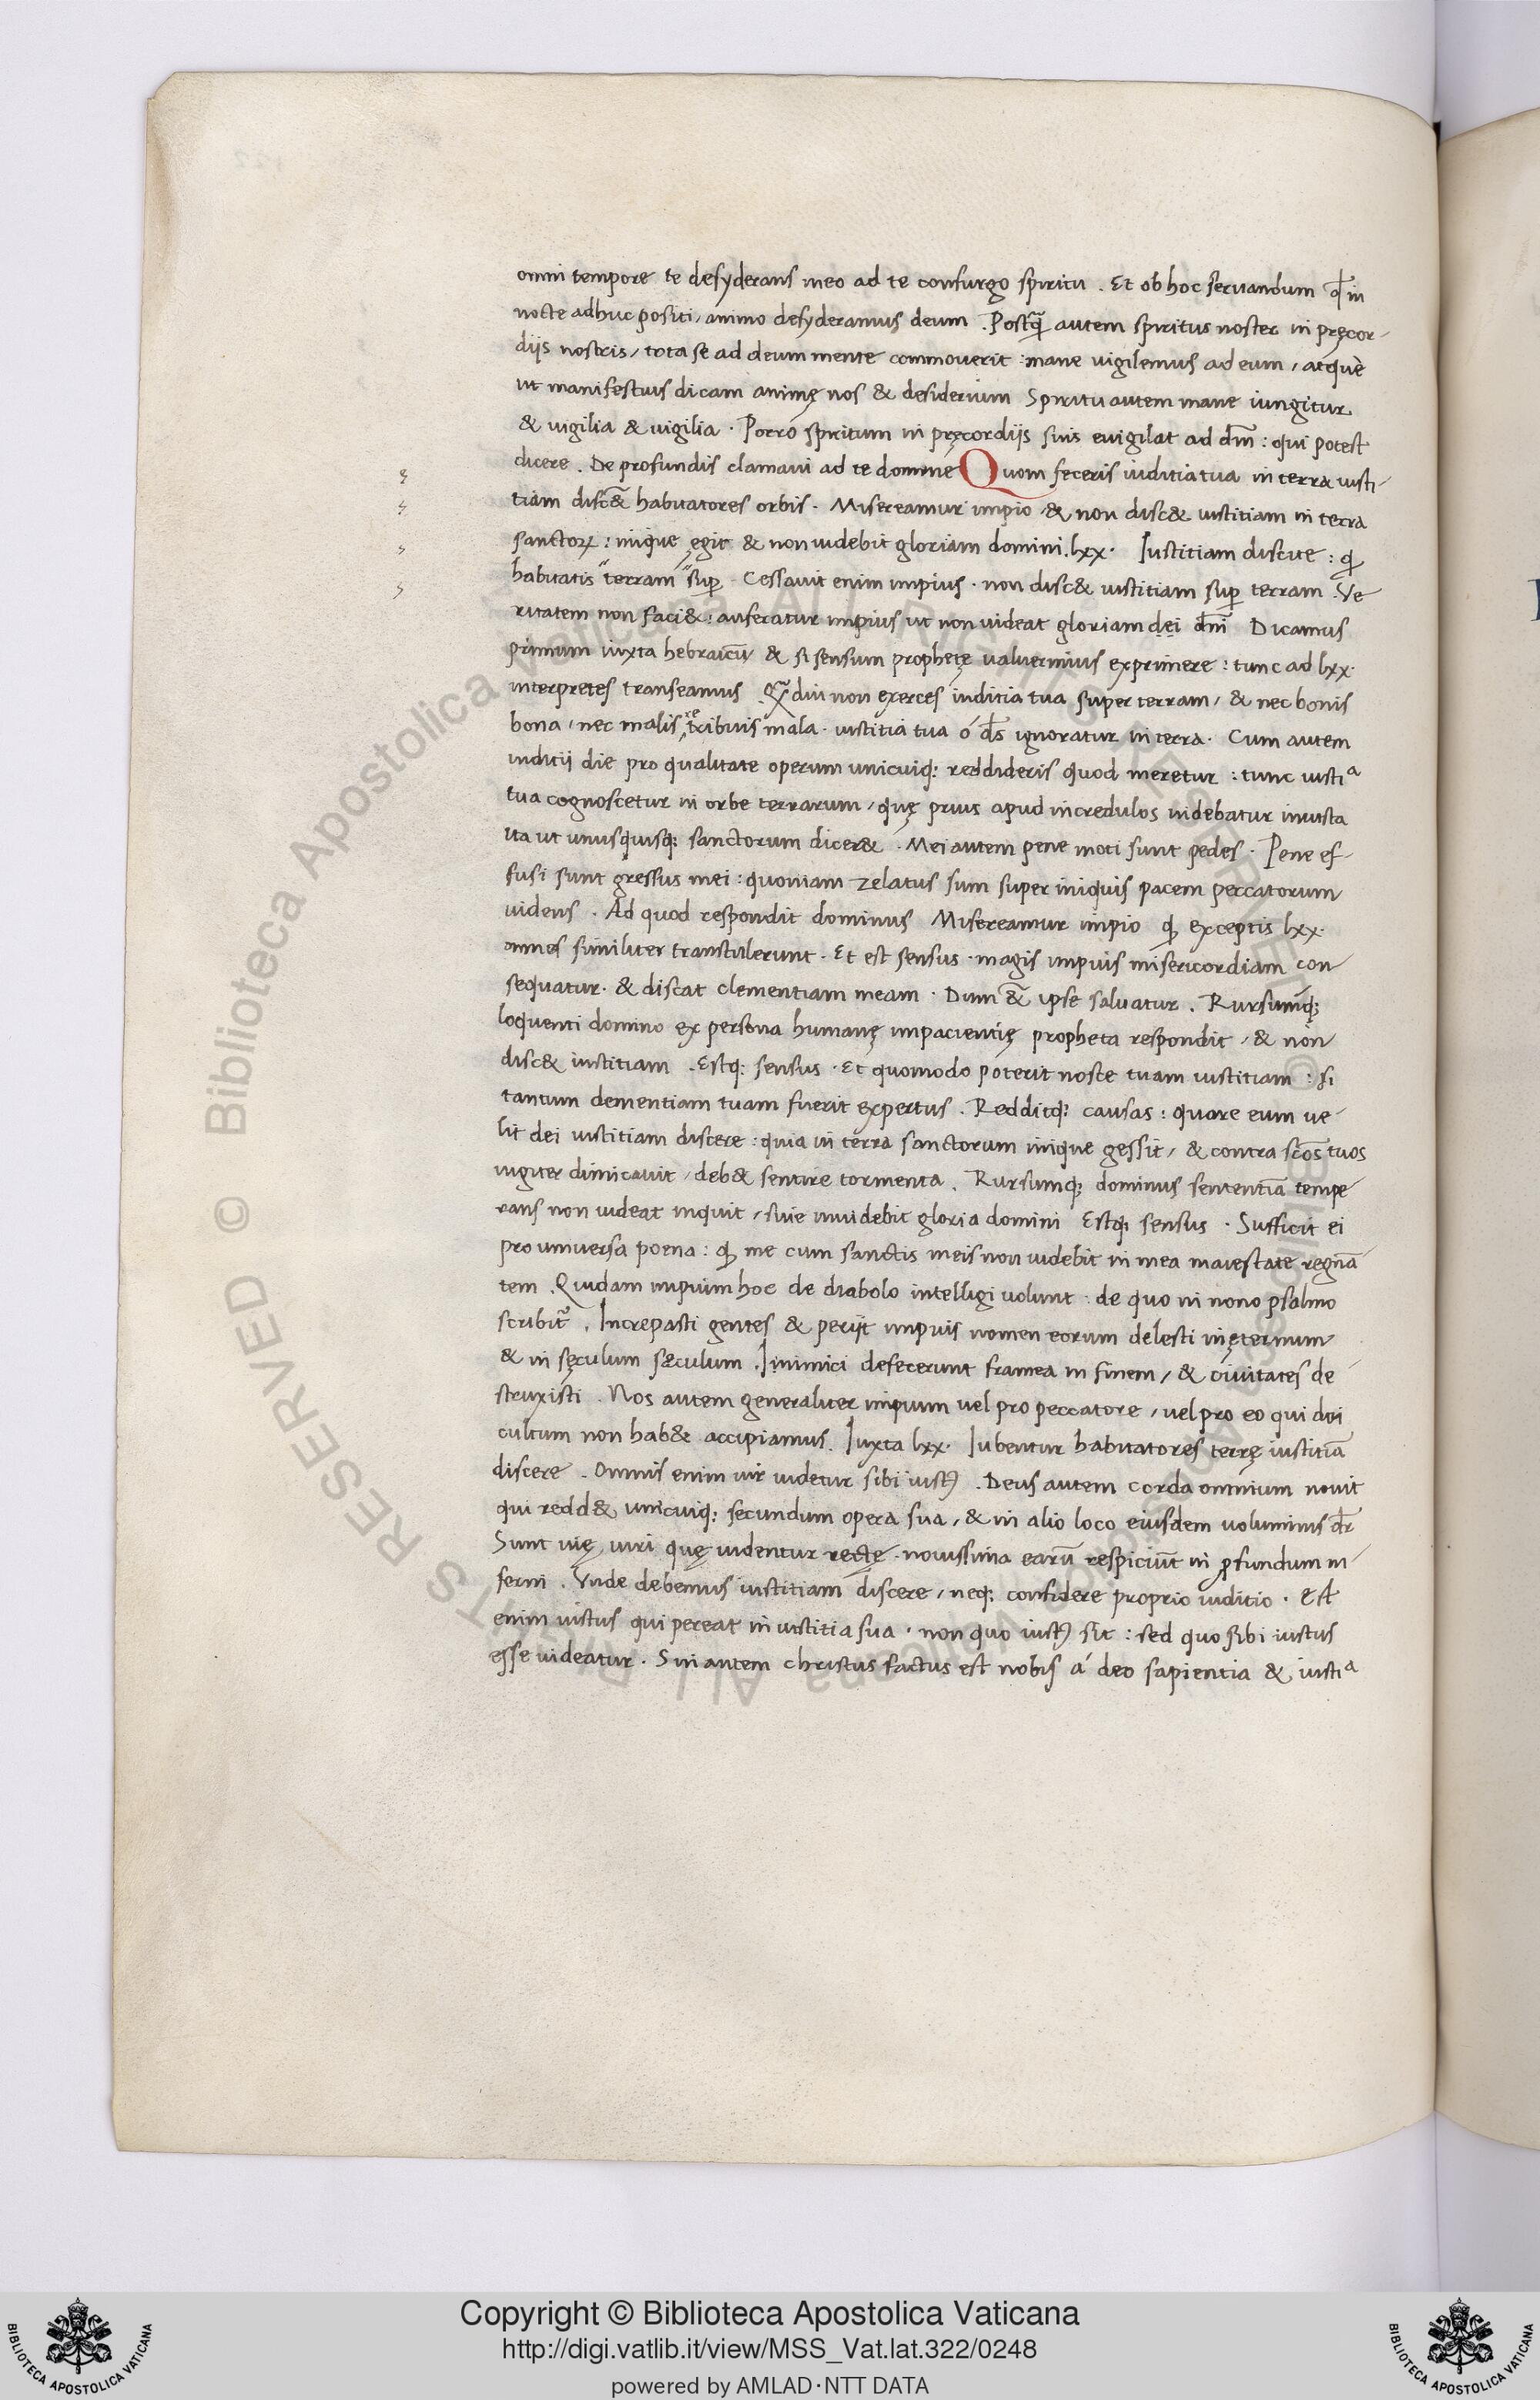 omni tempore te desyderans meo ad te consurgo spiritu . Et ob hoc seruandum qđ in
nocte adhuc positi / animo desyderamus deum . Postq̃ autem spiritus noster in pręcor-
dijs nostris / tota se ad deum mente commouerit : mane uigilemus ad eum / atque
ut manifestius dicam animę nos & desiderium Spiritu autem mane iungitur
& uigilia & uigilia . Porro spiritum in pręcordijs suis euigilat ad dm̃ : qui potest
dicere . De profundis clamaui ad te domine Quom feceris iuditia tua in terra iusti-
tiam disc&̃ habitatores orbis . Misereamur impio & non disc& iustitiam in terra
sanctoꝝ : inique egit & non uidebit gloriam domini . lxx . Iustitiam discite : ꝙ
habitatis "terram "suꝑ . Cessauit enim impius . non disc& iustitiam suꝑ terram . Ve
ritatem non faci& : auferatur impius ut non uideat gloriam dei dnĩ Dicamus
primum iuxta hebraicũ & si sensum prophetę ualuerimus exprimere : tunc ad lxx .
interpretes transeamus . Q̃diu non exerces iuditia tua super terram / & nec bonis
bona / nec malis retribuis mala . iustitia tua ó đs ignoratur in terra . Cum autem
iuditij die pro qualitate operum unicuiq; reddideris quod meretur : tunc iustiª
tua cognoscetur in orbe terrarum / quę prius apud incredulos uidebatur iniusta
ita ut unusquisq; sanctorum dicer& . Mei autem pene moti sunt pedes . Pene ef-
fusi sunt gressus mei : quoniam zelatus sum super iniquis pacem peccatorum
uidens . Ad quod respondit dominus Misereamur impio ꝙ exceptis lxx .
omnes similiter transtulerunt . Et est sensus . magis impius misericordiam con
sequatur . & discat clementiam meam . Dum &̃ ipse saluatur . Rursumq;
loquenti domino ex persona humanę impacientię propheta respondit / & non
disc& iustitiam . Estq; sensus . Et quomodo poterit nosce tuam iustitiam : si
tantum clementiam tuam fuerit expertus . Redditq; causas : quare eum ue-
lit dei iustitiam discere : quia in terra sanctorum inique gessit / & contra scõs tuos
iugiter dimicauit / deb& sentire tormenta . Rursumq; dominus sententiã tempe-
rans non uideat inquit / siue nõ uidebit gloria domini Estq; sensus . Sufficit ei
pro uniuersa poena : ꝙ me cum sanctis meis non uidebit in mea maiestate regnã
tem . Quidam impium hoc de diabolo intelligi uolunt : de quo in nono psalmo
scribit̃ . Increpasti gentes & perijt impius nomen eorum delesti in ęternum
& in sęculum sæculum . Inimici defecerunt framea in finem / & ciuitates de
struxisti . Nos autem generaliter impium uel pro peccatore / uel pro eo qui dei
cultum non hab& accipiamus . Iuxta lxx . Iubentur habitatores terrę iustitiã
discere . Omnis enim uir uidetur sibi iustꝰ . Deus autem corda omnium nouit
qui redd& unicuiq; secundum opera sua / & in alio loco eiusdem uoluminis đr
Sunt uię uiri quę uidentur rectę . nouissima earũ respiciũt in ꝓfundum in-
ferni . Vnde debemus iustitiam discere / neq; confidere proprio iuditio . Est
enim iustus qui pereat in iustitia sua . non quo iustꝰ sit : sed quo sibi iustus
esse uideatur . Sin autem christus factus est nobis á deo sapientia & iustiª
Copyright © Biblioteca Apostolica Vaticana
http://digi.vatlib.it/view/MSS_Vat.lat.322/0248
powered by AMLAD·NTT DATA